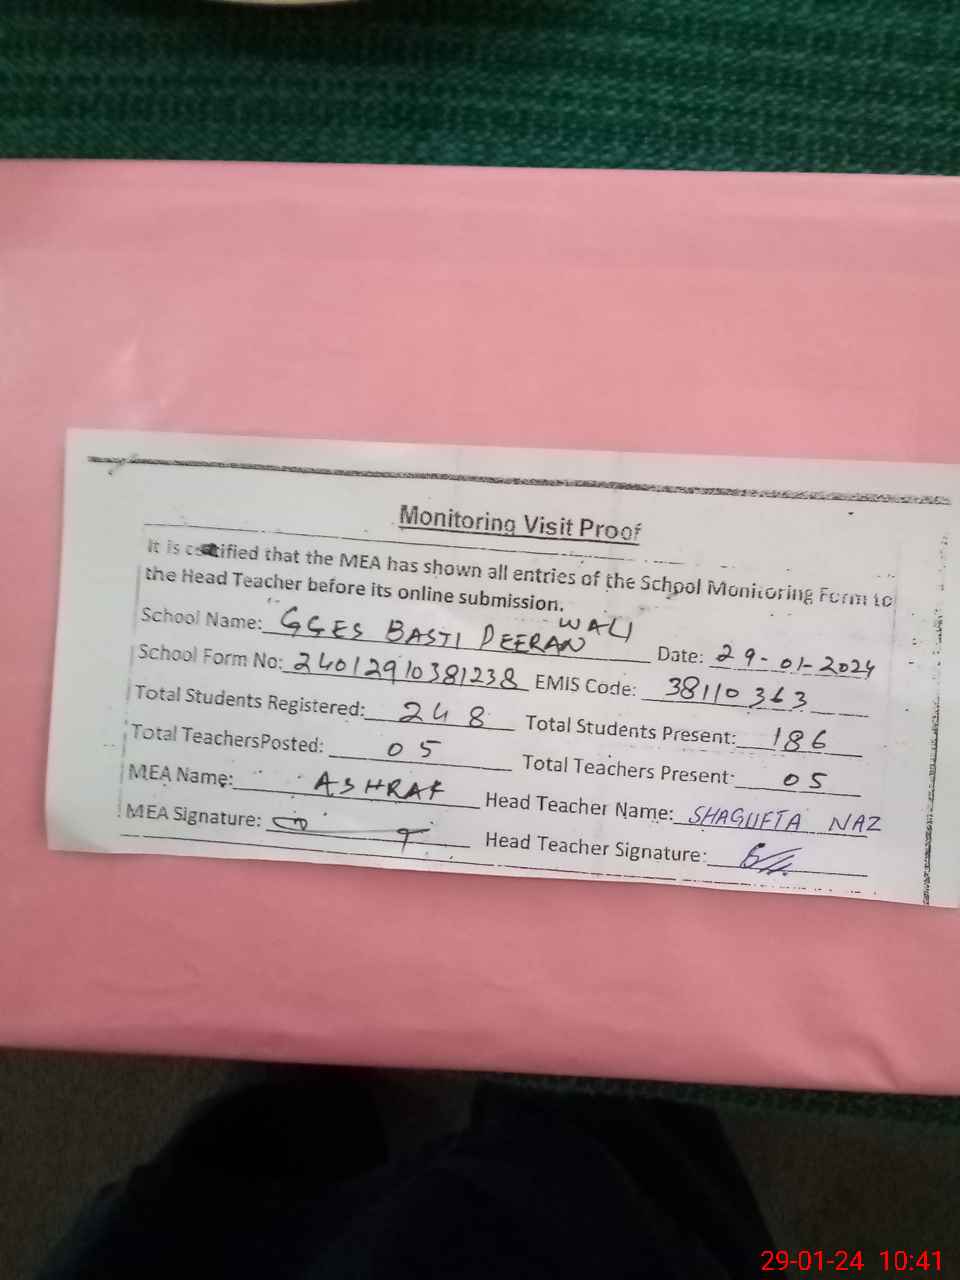 Monitoring Visit Proof
It is certified that the MEA has shown all entries of the School Monitoring Form to
the Head Teacher before its online submission.
School Name: GGES BASTI PEERAN WALI Date: 29-01-2024
School Form No: 24012910381238 EMIS Code: 38110363
Total Students Registered: 248 Total Students Present: 186
Total TeachersPosted: 05 Total Teachers Present: 05
MEA Name: ASHRAF Head Teacher Name: SHAGUFTA NAZ
MEA Signature: Head Teacher Signature:
29-01-24 10:41